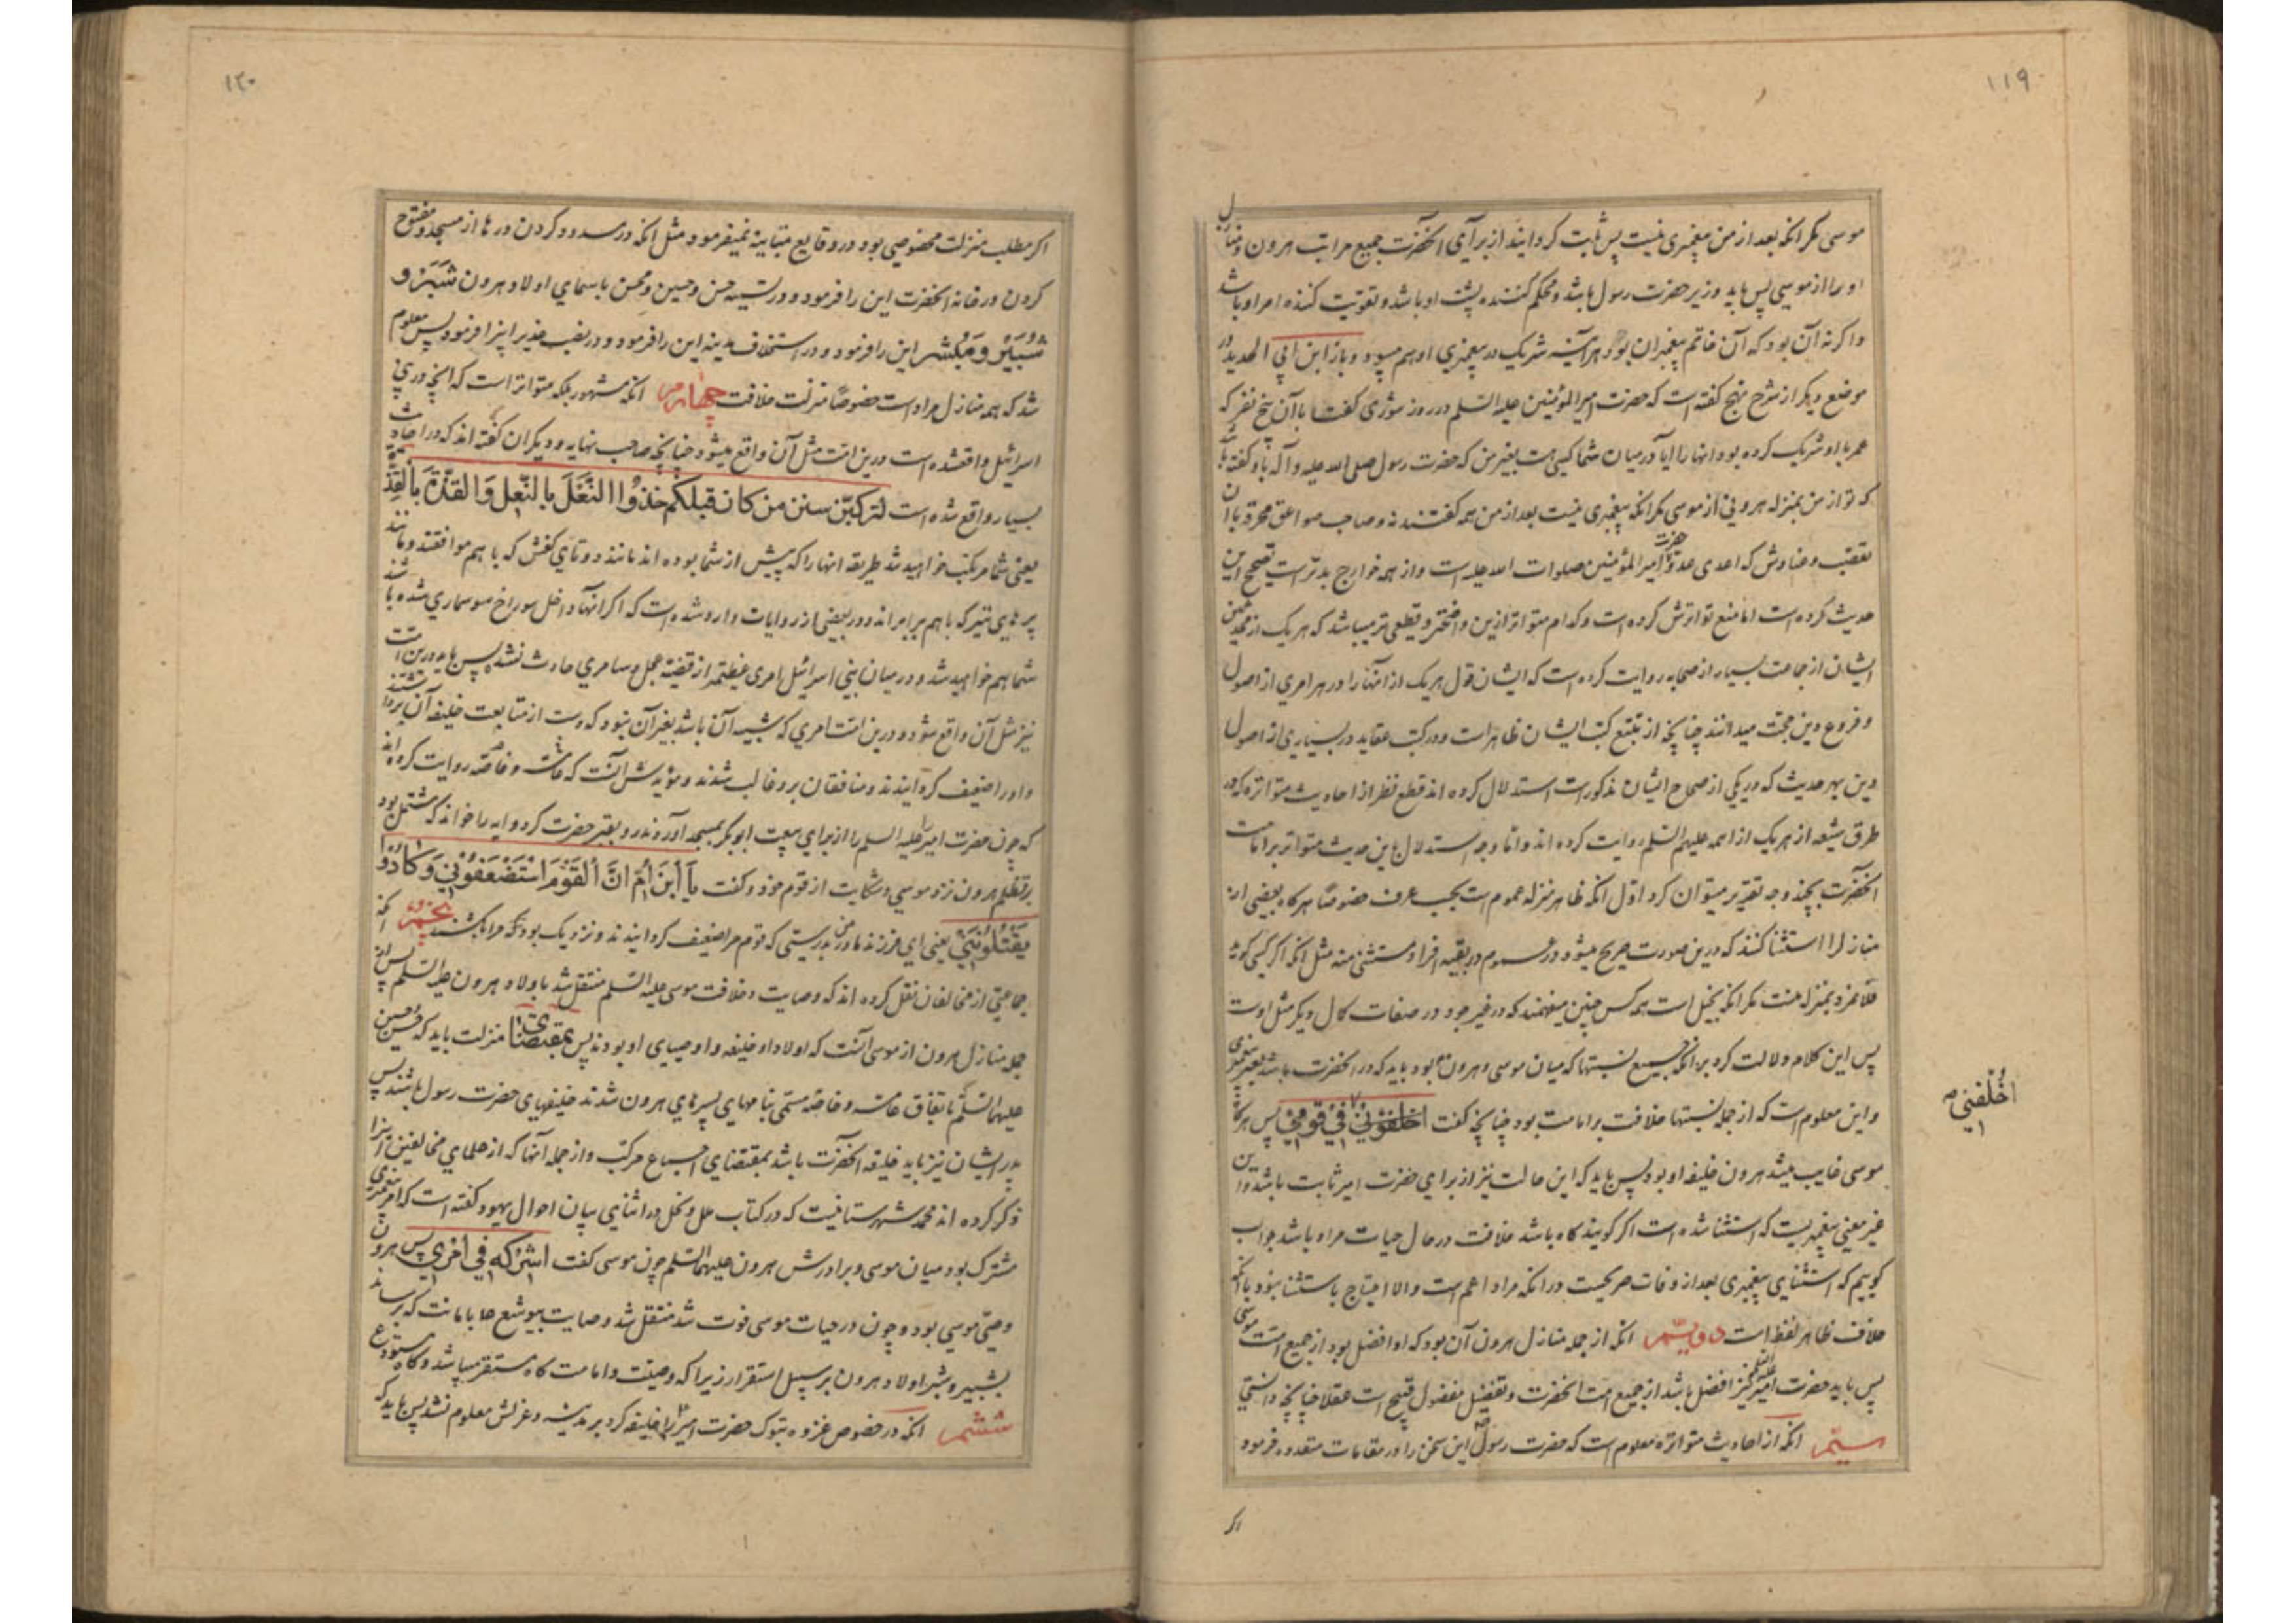 ۱۱۹
موسی مکر انکه بعد از من پیغمبری نیست پس ثابت کردانیدند از برآی آنحضرت جمیع مراتب هرون و منازل
او را از موسی پس باید وزیر حضرت رسول باشد و محکم کننده پشت او باشد و تقویت کننده امر او باشد
و اکر نه آن بود که آن خاتم پیغمبران بود هر آینه شریک در پیغمبری او هم میبود و باز ابن ابی الحدید در
موضع دیکر از شرح نهج کفته است که حضرت امیر المؤمنین علیه السلم در روز شوری کفت با آن پنج نفر که
عمر با او شریک کرده بود انها را ایا در میان شما کسی هست بغیر من که حضرت رسول صلی الله علیه و آله باو کفته باشد
که تو از من بمنزله هرونی از موسی مکر انکه پیغمبری نیست بعد از من همه کفتند نه و صاحب صواعق محرقه با آن
تعصب و عنادش که اعدی عدوّ حضرت امیر المؤمنین صلوات الله علیه است و از همه خوارج بدتر است تصحیح این
حدیث کرده است اما منع تواترش کرده است و کدام متواتر ازین واضحتر و قطعی تر میباشد که هر یک از محدثین
ایشان از جماعت بسیار از صحابه روایت کرده است که ایشان قول هر یک از انها را در هر امری از اصول
و فروع دین حجت میدانند چنانچه از تتبع کتب ایشان ظاهر است و در کتب عقاید در بسیاری از اصول
دین بهر حدیث که در یکی از صحاح ایشان مذکور است استدلال کرده اند قطع نظر از احادیث متواتره که در
طرق شیعه از هر یک از ائمه علیهم السلم روایت کرده اند و امّا وجه استدلال باین حدیث متواتر بر امامت
آنحضرت بچند وجه تقریر میتوان کرد اوّل انکه ظاهر منزله عموم است بحسب عرف خصوصًا هر کاه بعضی از
منازل را استثنا کنند که درین صورت صریح میشود در عموم در بقیه افراد مستثنی منه مثل انکه اکر کسی کوید
فلا نمرد بمنزله منست مکر انکه بخیل است همه کس چنین میفهمند که در غیر جود در صفات کمال دیکر مثل اوست
پس این کلام دلالت کرد بر انکه جمیع نسبتها که میان موسی و هرون بود باید که در انحضرت باشد بغیر پیغمبری
و این معلوم است که از جمله نسبتها خلافت و امامت بود چنانچه کفت اخلفونی فی قومی پس هر کاه
اُخْلُفْنِي صح
موسی غایب میشد هرون خلیفه او بود پس باید که این حالت نیز از برای حضرت امیر ثابت باشد و این
غیر معنی پیغمبریست که استثنا شده است اکر کویند کاه باشد خلافت در حال حیات مراد باشد جواب
کوییم که استثنای پیغمبری بعد از وفات صریحست در انکه مراد اعم است والا احتیاج باستثنا نبود با انکه
خلاف ظاهر لفظ است دویّم انکه از جمله منازل هرون آن بود که او افضل بود از جمیع امّت موسی
پس باید حضرت امیر علیه السلم نیز افضل باشد از جمیع امت انحضرت و تفضیل مفضول قبیح است عقلا چنانچه دانستی
سیّم انکه از احادیث متواتره معلوم است که حضرت رسول ص این سخن را در مقامات متعدده فرمود
اکر
۱۲۰
اکر مطلب منزلت مخصوصی بود در وقایع متباینه نمیفرمود مثل انکه در مسدود کردن درها از مسجد و مفتوح
کردن در خانه انحضرت این را فرمود و در تسمیه حسن و حسین و محسن باسمای اولاد هرون شَبَّرْ و
شُبَیْرْ و مُبَشّر این را فرمود و در استخلاف مدینه این را فرمود و در نصب غدیر اینرا فرمود پس معلوم
شد که همه منازل مراد است خصوصًا منزلت خلافت چهارم انکه مشهور بلکه متواتر است که انچه در بنی
اسرائیل واقعشده است درین امّت مثل آن واقع میشود چنانچه صاحب نهایه و دیکران کفته اند که در احادیث
بسیار واقع شده است لترکبّن سنن من کان قبلکم حذو النّعل بالنّعل و القذّة بالقذّة
یعنی شما مرتکب خواهید شد طریقه انها را که پیش از شما بوده اند مانند دو تای کفش که با هم موافقند و مانند
پرهای تیر که با هم برابراند و در بعضی از روایات وارد شده است که اکر انها داخل سوراخ سوسماری شده باشند
شما هم خواهید شد و در میان بنی اسرائیل امری عظیمتر از قضیّه عجل و سامری حادث نشد پس باید درین امّت
نیز مثل آن واقع شود و درین امّت امری که شبیه آن باشد بغیر آن نبود که دست از متابعت خلیفه آن برداشتند
و او را ضعیف کردانیدند و منافقان برو غالب شدند و مؤیدش آنست که عامّه و خاصّه روایت کرده اند
که چون حضرت امیر علیه السلم را از برای بیعت ابو بکر بمسجد آوردند رو بقبر حضرت کرد و ایه را خواند که مشتمل بود
بر تظلم هرون نزد موسی و شکایت از قوم خود و کفت یَا ابْنَ اُمَّ اِنَّ الْقَوْمَ اسْتَضْعَفُوْنِي وَ کَادُوْا
یَقْتُلُوْنَنِي یعنی ای فرزند مادر من بدرستی که قوم مرا ضعیف کردانیدند و نزدیک بود که مرا بکشند پنجم انکه
جماعتی از مخالفان نقل کرده اند که وصایت و خلافت موسی علیه السّلم منتقل شد باولاد هرون علیه السّلم پس از
جمله منازل هرون از موسی آنست که اولاد او خلیفه و اوصیای او بودند پس بمقتضای منزلت باید که حسن و حسین
علیهما السّلم باتفاق عامّه و خاصّه مسمّی بنامهای پسرهای هرون شدند خلیفهای حضرت رسول باشند پس
پدر ایشان نیز باید خلیفه آنحضرت باشد بمقتضای اجماع مرکّب و از جمله آنها که از علمای مخالفین اینرا
ذکر کرده اند محمد شهرستانیست که در کتاب ملل و نحل در اثنای بیان احوال یهود کفته است که امر پیغمبری
مشترک بود میان موسی و برادرش هرون علیهما السّلم چون موسی کفت اشرکه فی امری پس هرون
وصیّ موسی بود و چون در حیات موسی فوت شد منتقل شد وصایت بیوشع بامانت که برساند
بشبیر و شبر اولاد هرون بر سبیل استقرار زیرا که وصیّت و امامت کاه مستقر میباشد و کاه مستودع
ششم انکه در خصوص غزوه تبوک حضرت امیر را خلیفه کرد بر مدینه و عزلش معلوم نشد پس باید که